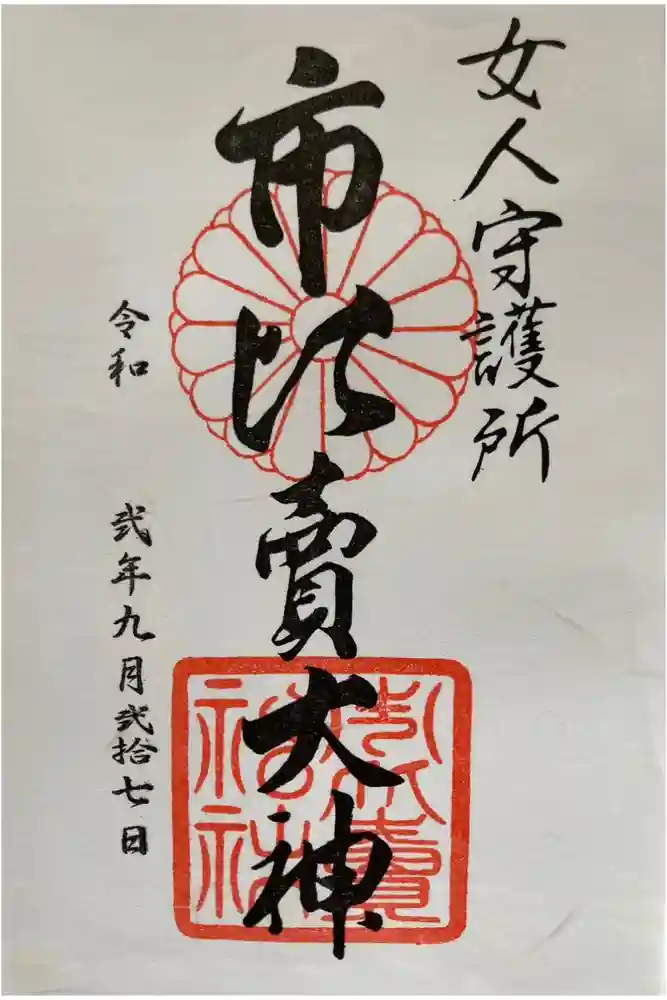 女人守護所
市比賣大神
令和 弐年九月弐拾七日
市比賣神社